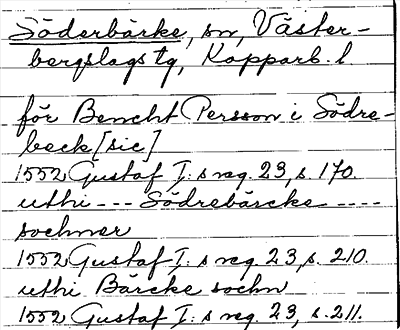 Söderbärke, sn, Väster-
bergslags tg, Kopparb. l.
för Bencht Persson i Södre-
beck [sic]
1552 Gustaf I: s reg. 23, s. 170.
uthi --- Södrebärcke ----
sochner
1552 Gustaf I: s reg. 23, s. 210.
uthi Bärcke sochn
1552 Gustaf I: s reg. 23, s. 211.